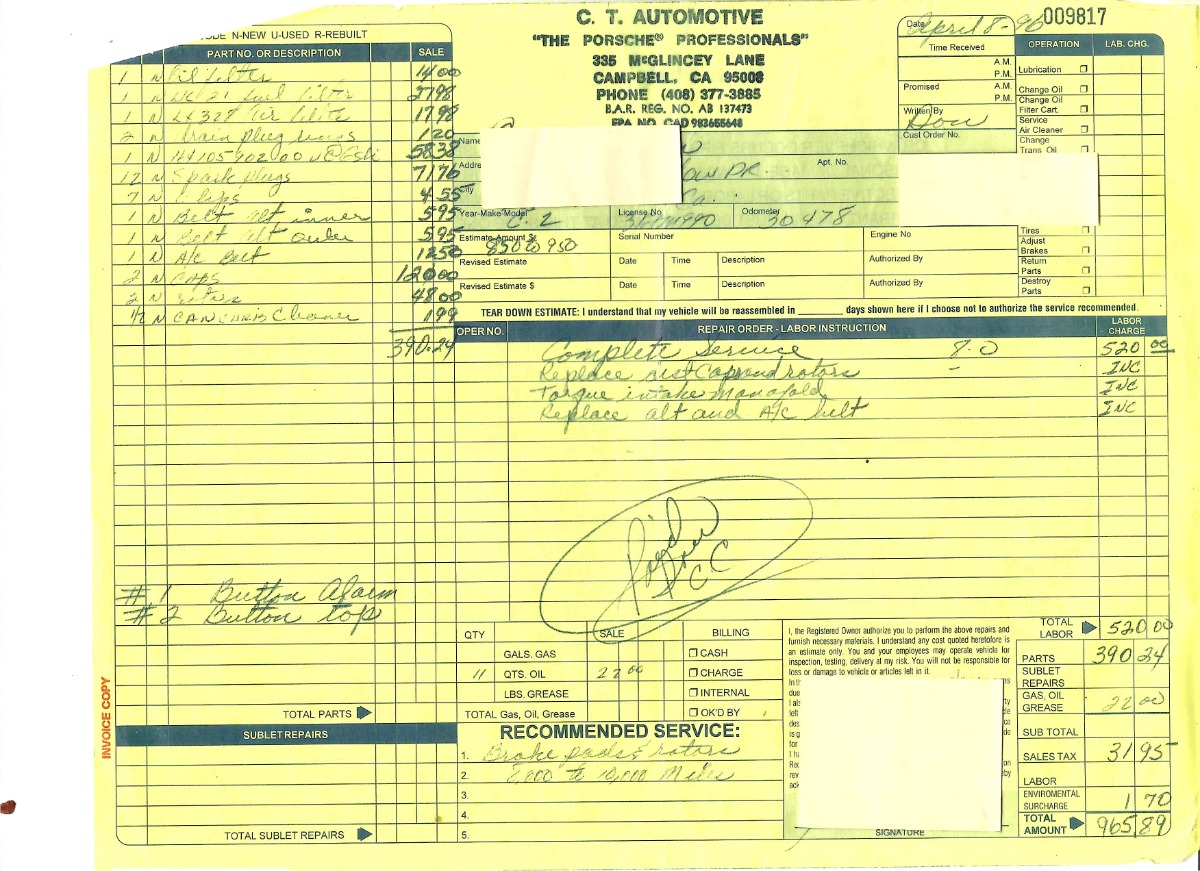 C. T. AUTOMOTIVE
"THE PORSCHE® PROFESSIONALS"
335 McGLINCEY LANE
CAMPBELL, CA 95008
PHONE (408) 377-3885
B.A.R. REG. NO. AB 137473
EPA NO. CAD 983655648
009817
Date April 8-96
Time Received
A.M.
P.M.
Promised
A.M.
P.M.
Written By
Cust Order No.
OPERATION LAB. CHG.
Lubrication
Change Oil
Change Oil
Filter Cart.
Service
Air Cleaner
Change
Trans Oil
Tires
Adjust
Brakes
Return
Parts
Destroy
Parts
CODE N-NEW U-USED R-REBUILT
PART NO. OR DESCRIPTION SALE
1 N Oil filter 14 00
1 N fuel filter 27 98
1 N LX 328 Air filte 17 98
2 N drain plug rings 1 20
1 N 58 38
12 N Spark plugs 71 76
7 N Clips 4 55
1 N Belt Alt inner 5 95
1 N Belt Alt outer 5 95
1 N A/c Belt 12 50
2 N CAPS 120 00
2 N rotors 48 00
1/2 N CAN CARB Cleaner 1 99
390.24
# 1 Button Alarm
# 2 Button top
Name
Addre
DR. Apt. No.
City Ca.
Year-Make-Model C-2
License No.
Odometer 30478
Estimate Amount $ 850 to 950
Serial Number
Engine No.
Revised Estimate Date Time Description Authorized By
Revised Estimate $ Date Time Description Authorized By
TEAR DOWN ESTIMATE: I understand that my vehicle will be reassembled in ________ days shown here if I choose not to authorize the service recommended.
OPER NO. REPAIR ORDER - LABOR INSTRUCTION LABOR - CHARGE
Complete Service 8.0 520 00
Replace dist Caps and rotors - INC
Torque intake manafold INC
Replace alt and A/c belt INC
Paid
CC
QTY SALE BILLING
GALS. GAS CASH
11 QTS. OIL 22 00 CHARGE
LBS. GREASE INTERNAL
TOTAL PARTS TOTAL Gas, Oil, Grease OK'D BY
I, the Registered Owner authorize you to perform the above repairs and
furnish necessary materials. I understand any cost quoted heretofore is
an estimate only. You and your employees may operate vehicle for
inspection, testing, delivery at my risk. You will not be responsible for
loss or damage to vehicle or articles left in it.
SIGNATURE
TOTAL LABOR 520 00
PARTS 390 24
SUBLET REPAIRS
GAS, OIL GREASE 22 00
SUB TOTAL
SALES TAX 31 95
LABOR
ENVIROMENTAL SURCHARGE 1 70
TOTAL AMOUNT 965 89
INVOICE COPY
SUBLET REPAIRS
TOTAL SUBLET REPAIRS
RECOMMENDED SERVICE:
1. Brake pads & rotors
2. 8,000 to 10,000 Miles
3.
4.
5.